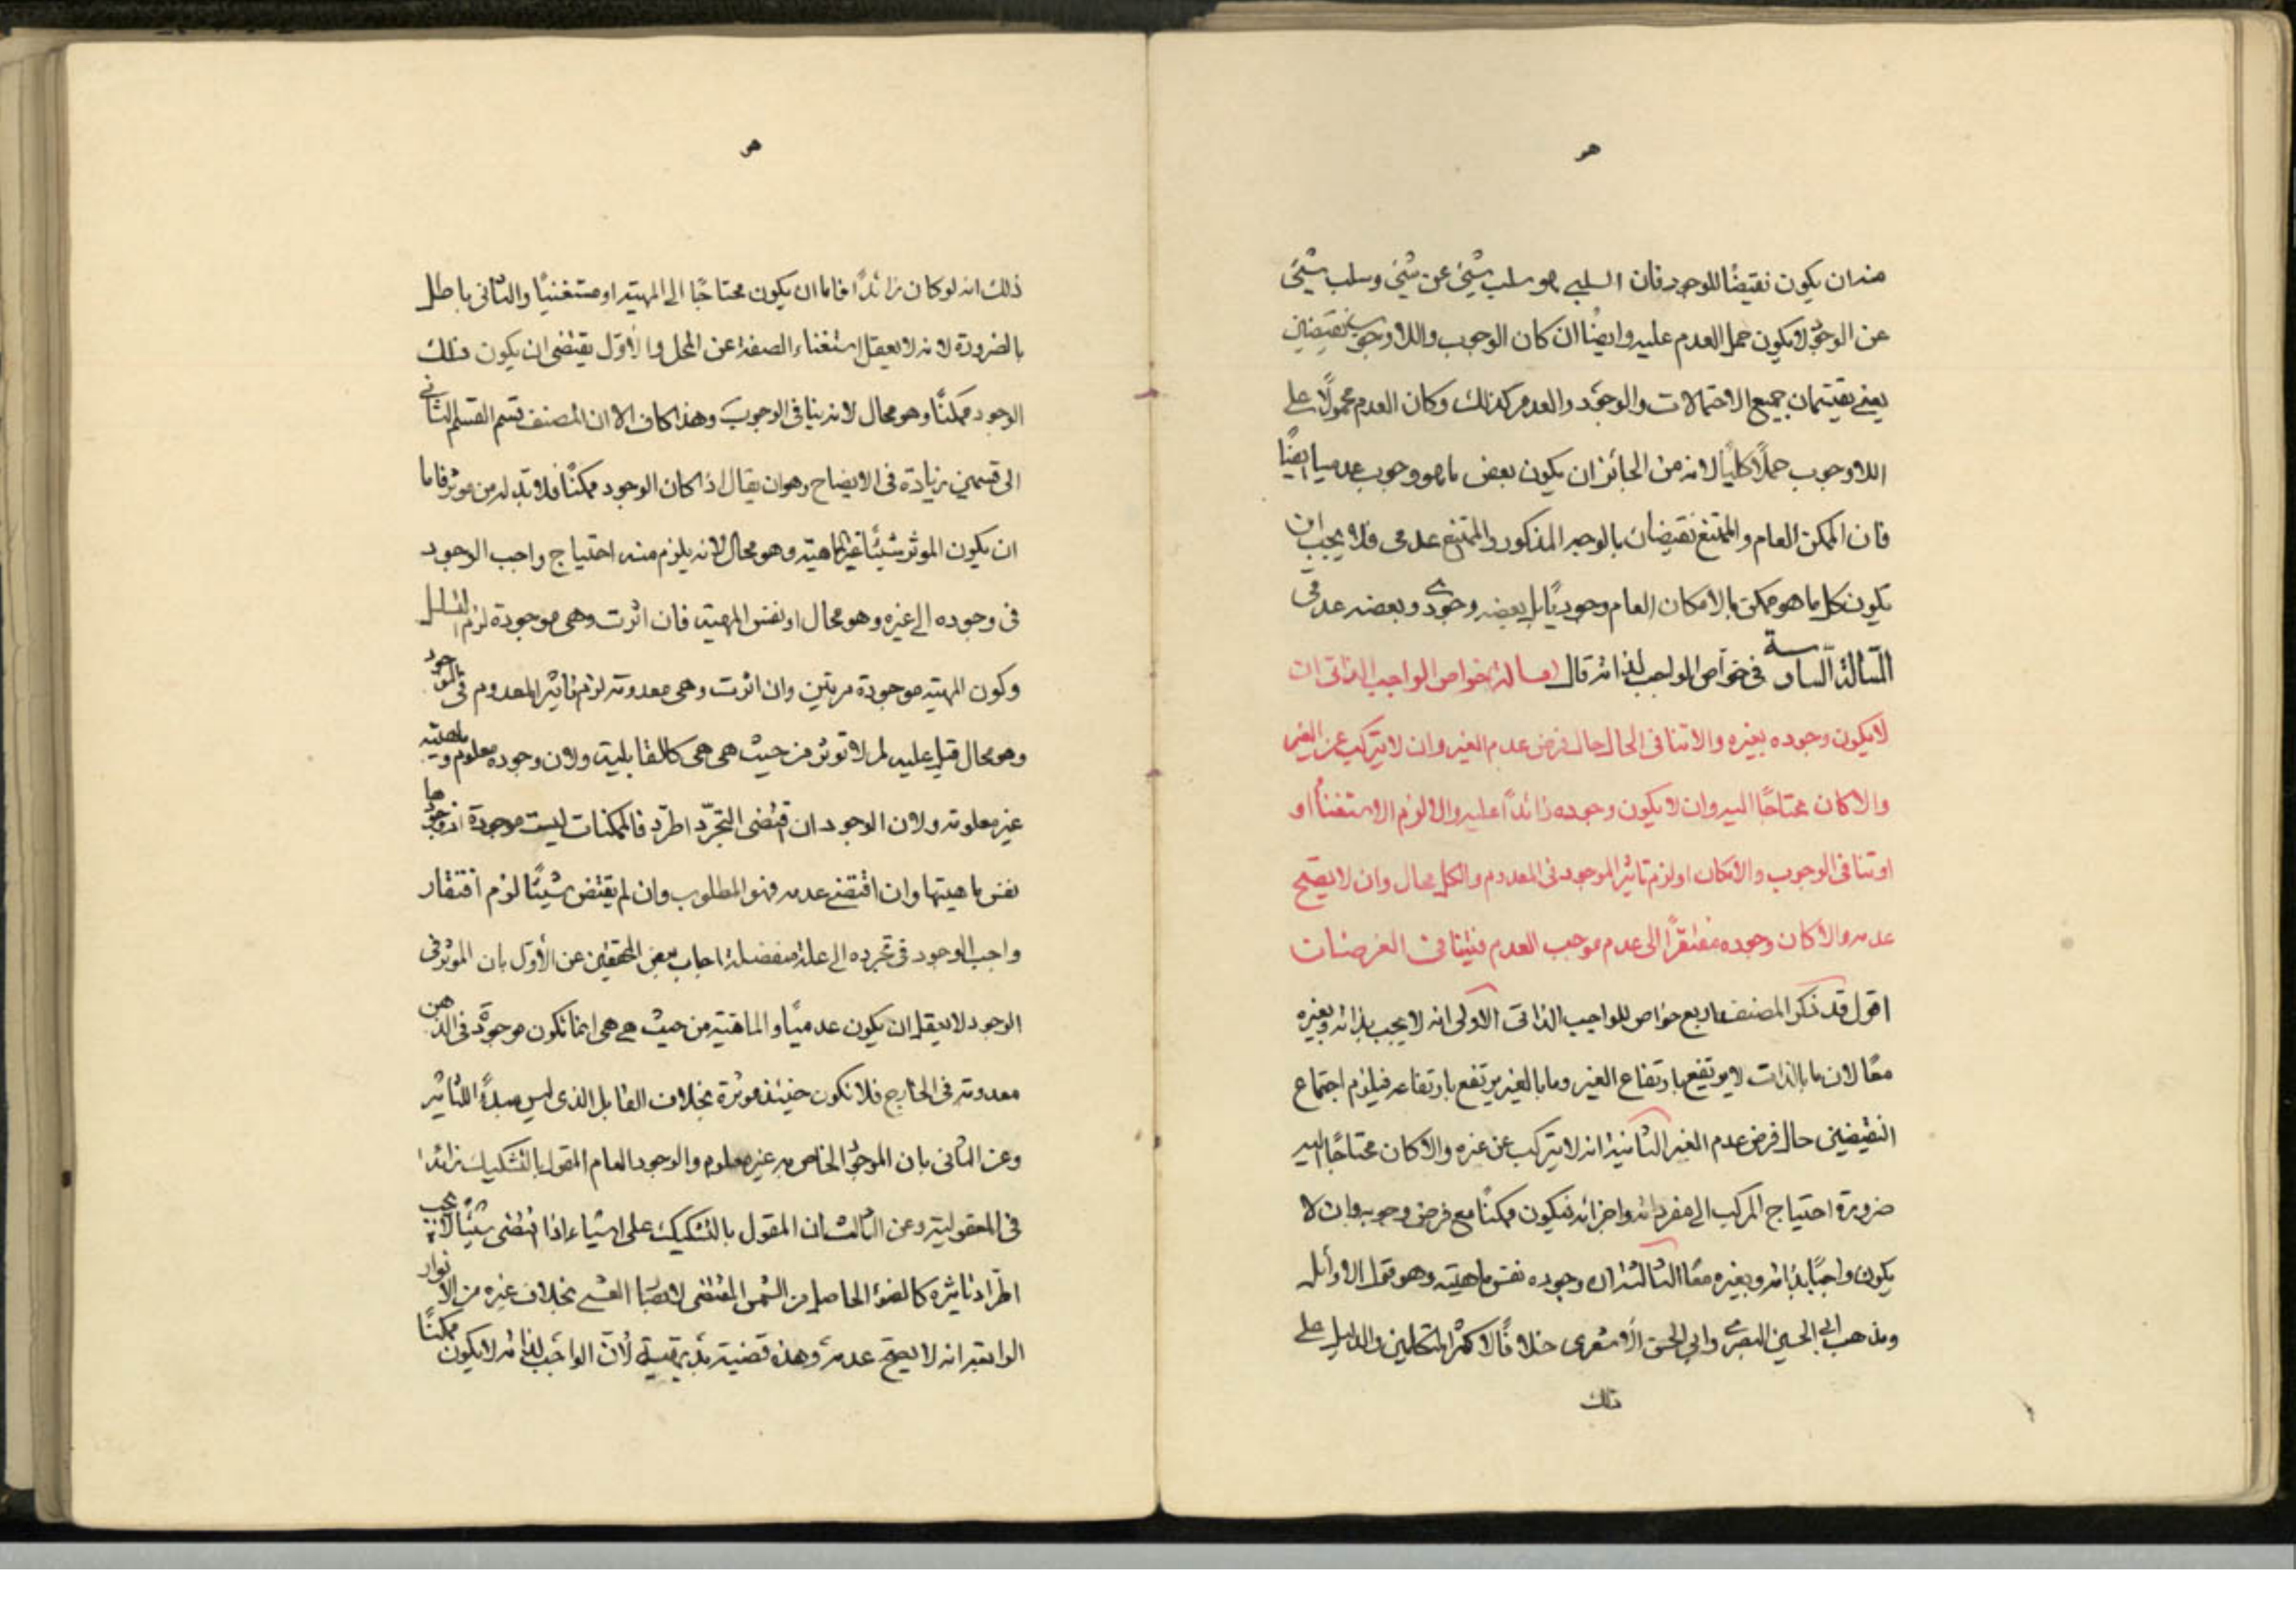 هو
منه ان يكون نقيضًا للوجود فان السلبي هو سلب شيئ عن شيئ وسلب شيئ
عن الوجود لا يكون حمل العدم عليه وايضًا ان كان الوجوب واللاوجوب نقيضين
يعنى يقتسمان جميع الاحتمالات والوجود والعدم كذلك وكان العدم محمولًا على
اللاوجوب حملًا كليًا لانه من الجائز ان يكون بعض ما هو وجوب عدميا ايضًا
فان الممكن العام والممتنع نقيضان بالوجه المذكور والممتنع عدمى فلا يجب ان
يكون كل ما هو ممكن بالامكان العام وجوديًا بل بعضه وجودى وبعضه عدمى
المسالة السادسة فى خواص الواجب لذاته قال خواص الواجب الذاتى ان
لا يكون وجوده بغيره والا تنافى الحال حال فرض عدم الغير وان لا يتركب عن الغير
والا كان محتاجًا اليه وان لا يكون وجوده زائدًا عليه والا لزم الاستغناء او
او تنافى الوجوب والامكان او لزم تاثير الموجود فى المعدوم والكل محال وان لا يصح
عدمه والا كان وجوده مفتقرًا الى عدم موجب العدم فيتنافى الفرضان
اقول قد ذكر المصنف اربع خواص للواجب الذاتى الاولى انه لا يجب بذاته وبغيره
معًا لان ما بالذات لا يرتفع بارتفاع الغير وما بالغير يرتفع بارتفاعه فيلزم اجتماع
النقيضين حال فرض عدم الغير الثانية انه لا يتركب عن غيره والا كان محتاجًا اليه
ضرورة احتياج المركب الى مفرداته واجزائه فيكون ممكنًا مع فرض وجوبه وان لا
يكون واجبًا بذاته وبغيره معًا الثالثة ان وجوده نفس ماهيته وهو قول الاوائل
ومذهب ابى الحسين البصرى وابى الحسن الاشعرى خلافًا لاكثر المتكلمين والدليل على
ذلك
هو
ذلك انه لو كان زائدًا فاما ان يكون محتاجًا الى المهية او مستغنيًا والثانى باطل
بالضرورة لانه لا يعقل استغناء الصفة عن المحل والاوّل يقتضى ان يكون ذلك
الوجود ممكنًا وهو محال لانه ينافى الوجوب وهذا كاف الا ان المصنف قسم القسم الثانى
الى قسمين زيادة فى الايضاح وهو ان يقال اذا كان الوجود ممكنًا فلا بد له من موثر فاما
ان يكون الموثر شيئًا غير الماهية وهو محال لانه يلزم منه احتياج واجب الوجود
فى وجوده الى غيره وهو محال او نفس المهية فان اثرت وهى موجودة لزم التسلسل
وكون المهية موجودة مرتين وان اثرت وهى معدومة لزم تاثير المعدوم فى الموجود
وهو محال قيل عليه لم لا توثر من حيث هى هى كالقابلية ولان وجوده معلوم وماهيته
غير معلومة ولان الوجود ان اقتضى التجرّد اطرد فالممكنات ليست موجودة او وجودها
نفس ماهيتها وان اقتضى عدمه فهو المطلوب وان لم يقتض شيئًا لزم افتقار
واجب الوجود فى تجرده الى علة منفصلة اجاب بعض المحققين عن الأوّل بان الموثر فى
الوجود لا يعقل ان يكون عدميًا والماهية من حيث هى هى انما تكون موجودة فى الذهن
معدومة فى الخارج فلا تكون حينئذ موثرة بخلاف القابل الذى ليس مبدأً للتاثير
وعن الثانى بان الوجود الخاص به غير معلوم والوجود العام المقول بالتشكيك زائدا
فى المعقولية وعن الثالث ان المقول بالتشكيك على اشياء اذا اقتضى شيئًا لا يجب
اطّراد تاثيره كالضوء الحاصل من الشمس المقتضى لابصار العشى بخلاف غيره من الانوار
الرابعة انه لا يصح عدمه وهذه قضية بديهية لأنّ الواجب لذاته لا يكون ممكنًا